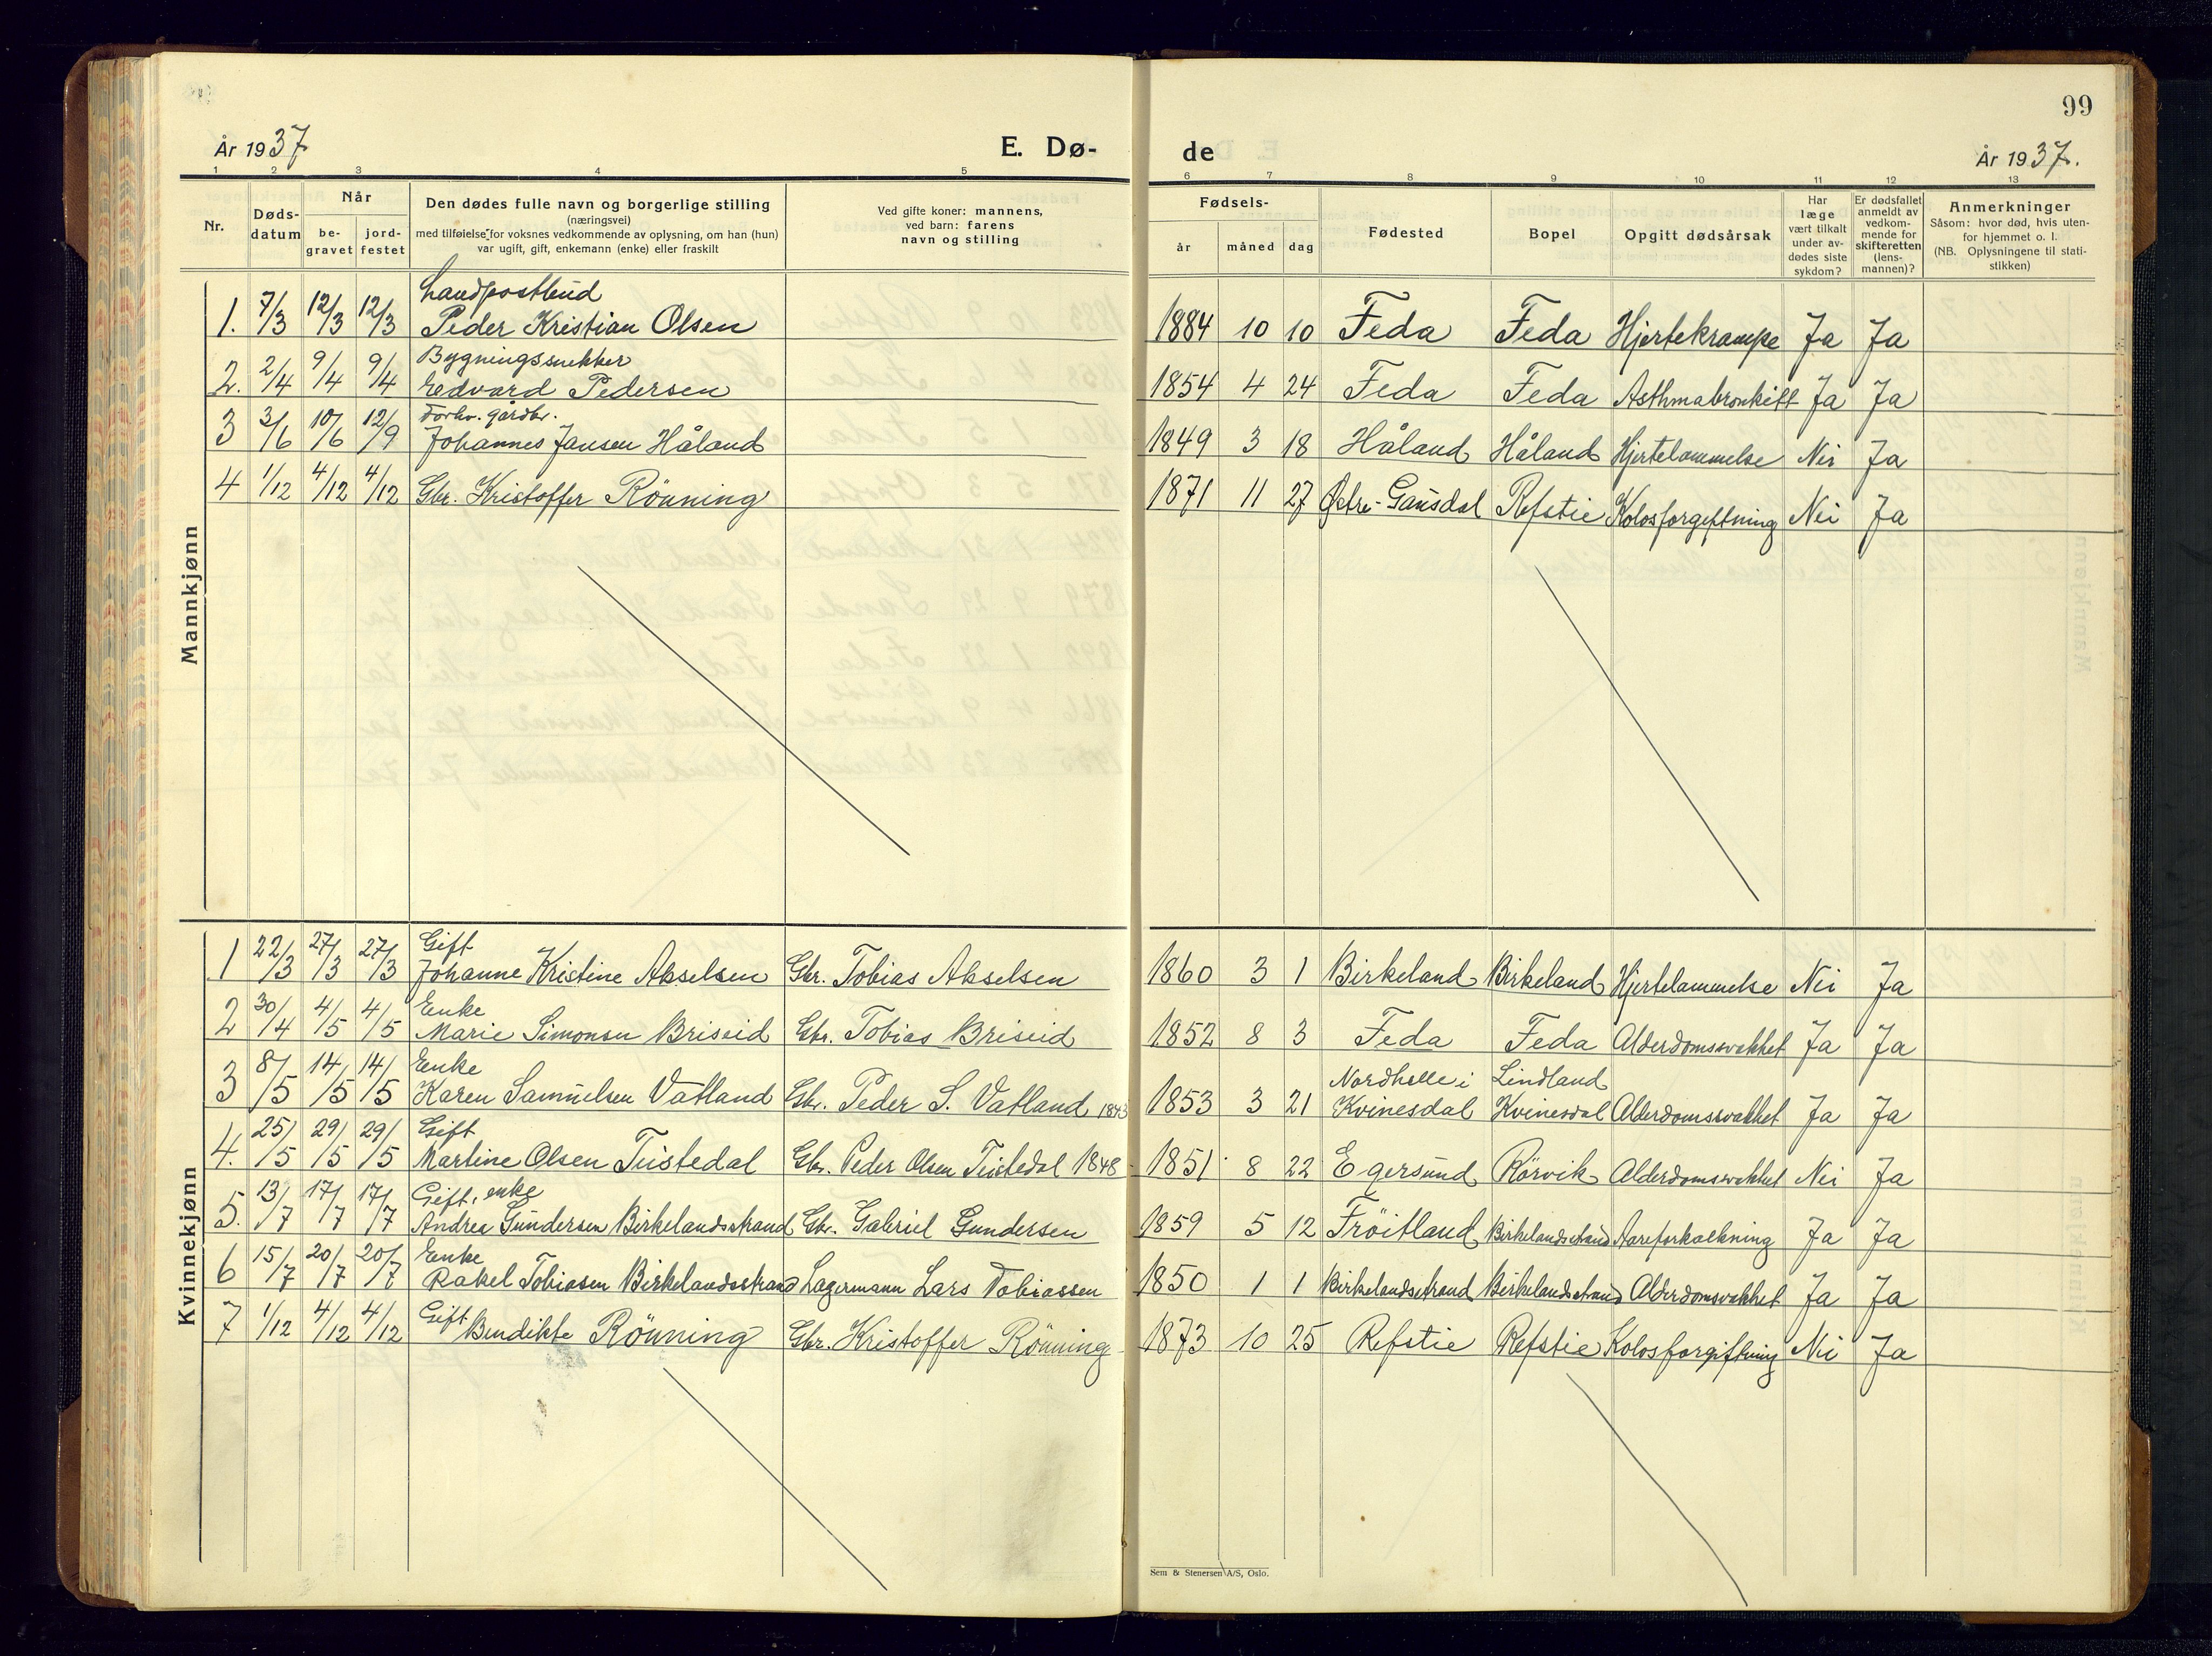 99
År 1937
E. Dø-
de
År 1937.
1 2 3 4 5 6 7 8 9 10 11 12 13
Nr.
Døds-
datum
Når
be-
gravet
jord-
festet
Den dødes fulle navn og borgerlige stilling
(næringsvei)
med tilføielse for voksnes vedkommende av oplysning, om han (hun)
var ugift, gift, enkemann (enke) eller fraskilt
Ved gifte koner: mannens,
ved barn: farens
navn og stilling
Fødsels-
år måned dag
Fødested
Bopel
Opgitt dødsårsak
Har
læge
vært tilkalt
under av-
dødes siste
sykdom?
Er dødsfallet
anmeldt av
vedkom-
mende for
skifteretten
(lens-
mannen)?
Anmerkninger
Såsom: hvor død, hvis uten-
for hjemmet o. l.
(NB. Oplysningene til stati-
stikken)
Mannkjønn
Landpostbud
1. 7/3 12/3 12/3 Peder Kristian Olsen 1884 10 10 Feda Feda Hjertekrampe Ja Ja
Bygningssnekker
2. 2/4 9/4 9/4 Edvard Pedersen 1854 4 24 Feda Feda Asthmabronkitt Ja Ja
Forhv. gårdbr.
3 3/6 10/6 12/9 Johannes Jansen Håland 1849 3 18 Håland Håland Hjertelammelse Nei Ja
4 1/12 4/12 4/12 Gbr. Kristoffer Rönning 1871 11 27 Østre-Gausdal Refstie Kolosforgiftning Nei Ja
Kvinnekjønn
Gift
1 22/3 27/3 27/3 Johanne Kristine Akselsen Gbr. Tobias Akselsen 1860 3 1 Birkeland Birkeland Hjertelammelse Nei Ja
Enke
2 30/4 4/5 4/5 Marie Simonsen Briseid Gbr. Tobias Briseid 1852 8 3 Feda Feda Alderdomssvakhet Ja Ja
Enke Nordhelle i Lindland
3 8/5 14/5 14/5 Karen Samuelsen Vatland Gbr. Peder S. Vatland 1843 1853 3 21 Kvinesdal Kvinesdal Alderdomssvakhet Ja Ja
Gift
4. 25/5 29/5 29/5 Martine Olsen Teistedal Gbr. Peder Olsen Teistedal 1848 1851 8 22 Egersund Rörvik Alderdomssvakhet Nei Ja
Gift, enke
5. 13/7 17/7 17/7 Andrea Gundersen Birkelandsstrand Gbr. Gabriel Gundersen 1859 5 12 Fröitland Birkelandsstrand Aareforkalkning Ja Ja
Enke
6 15/7 20/7 20/7 Rakel Tobiasen Birkelandsstrand Lagermann Lars Tobiassen 1850 1 1 Birkelandsstrand Birkelandsstrand Alderdomsvakhet Ja Ja
Gift
7 1/12 4/12 4/12 Bendikte Rönning Gbr. Kristoffer Rönning 1873 10 25 Refstie Refstie Kolosforgiftning Nei Ja
Sem & Stenersen A/S, Oslo.